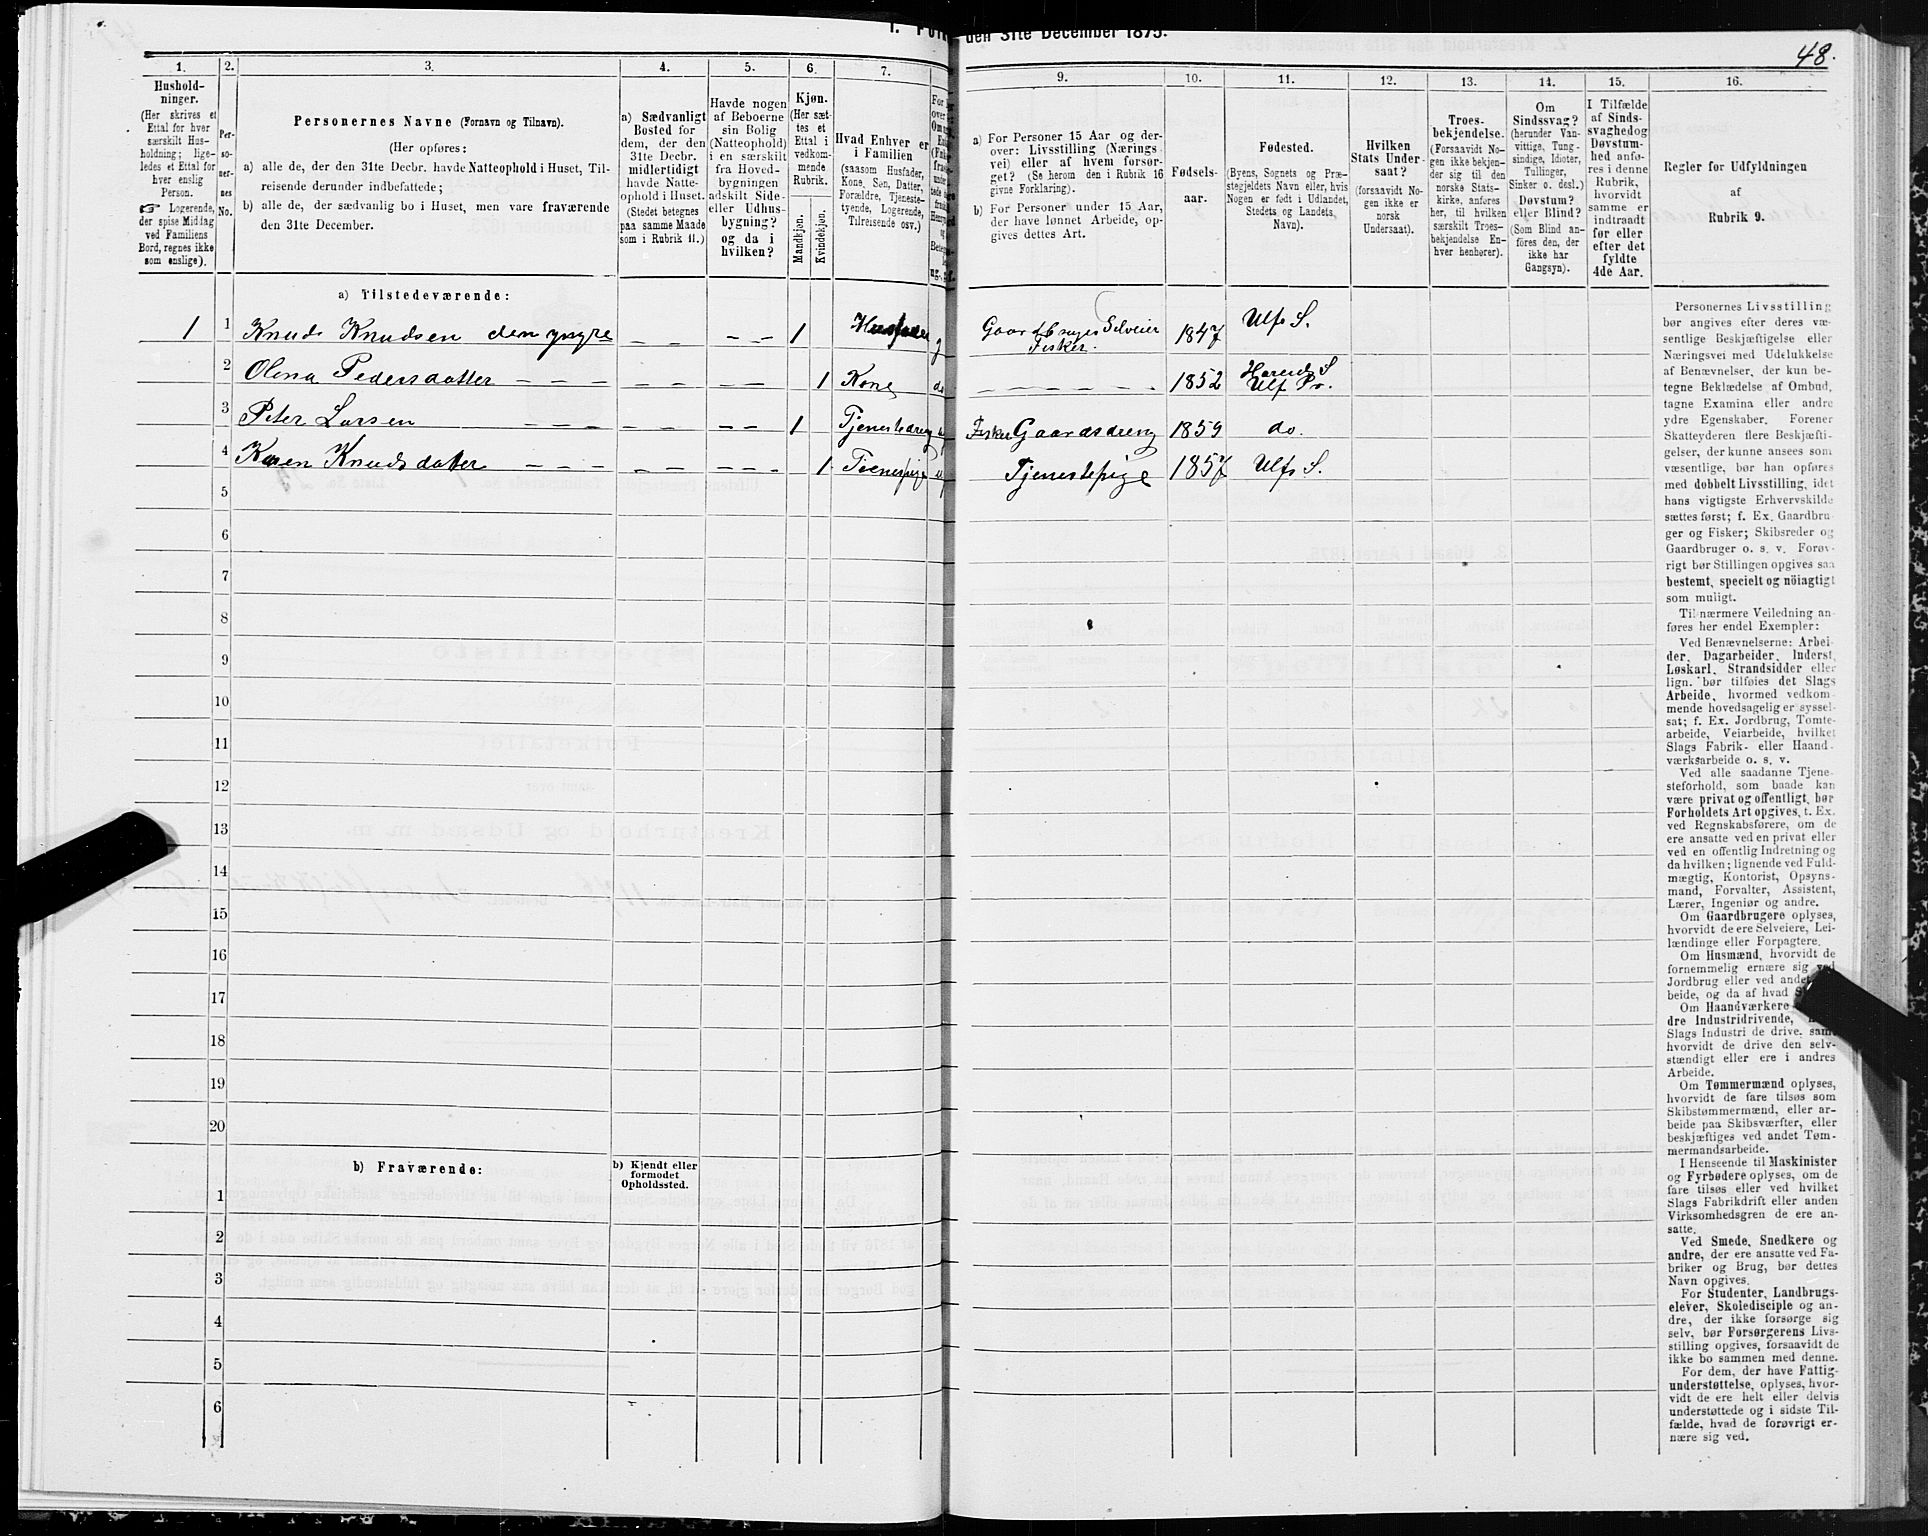 den 31te December 1875.
48.
1.
2.
3.
4.
5.
6.
7.
9.
10.
11.
12.
13.
14.
15.
16.
Hushold-
ninger.
(Her skrives et
Ettal for hver
særskilt Hus-
holdning; lige-
ledes et Ettal for
hver enslig
Person.
☞ Logerende,
der spise Middag
ved Familiens
Bord, regnes ikke
som enslige).
Per-
so-
ner-
nes
No.
Personernes Navne (Fornavn og Tilnavn).
(Her opføres:
a) alle de, der den 31te Decbr. havde Natteophold i Huset, Til-
reisende derunder indbefattede;
b) alle de, der sædvanlig bo i Huset, men vare fraværende
den 31te December.
a) Sædvanligt
Bosted for
dem, der den
31te Decbr.
midlertidigt
havde Natte-
ophold i Huset.
(Stedet betegnes
paa samme Maade
som i Rubrik 11.)
Havde nogen
af Beboerne
sin Bolig
(Natteophold)
i en særskilt
fra Hoved-
bygningen
adskilt Side-
eller Udhus-
bygning?
og da i
hvilken?
Kjøn.
(Her sæt-
tes et
Ettal i
vedkom-
mende
Rubrik.
Mandkjøn.
Kvindekjøn.
Hvad Enhver er
i Familien
(saasom Husfader,
Kone, Søn, Datter,
Forældre, Tjeneste-
tyende, Logerende,
Tilreisende osv.)
a) For Personer 15 Aar og der-
over: Livsstilling (Nærings-
vei) eller af hvem forsør-
get? (Se herom den i Rubrik 16
givne Forklaring).
b) For Personer under 15 Aar,
der have lønnet Arbeide, op-
gives dettes Art.
Fødsels-
aar.
Fødested.
(Byens, Sognets og Præ-
stegjeldets Navn eller, hvis
Nogen er født i Udlandet,
Stedets og Landets
Navn).
Hvilken
Stats Under-
saat?
(forsaavidt No-
gen ikke er
norsk
Undersaat).
Troes-
bekjendelse.
(Forsaavidt No-
gen ikke bekjen-
der sig til den
norske Stats-
kirke, anføres
her, til hvilken
særskilt Troes-
bekjendelse En-
hver henhører).
Om
Sindssvag?
(herunder Van-
vittige, Tung-
sindige, Idioter,
Tullinger,
Sinker o. desl.)
Døvstum?
eller Blind?
(Som Blind an-
føres den, der
ikke har
Gangsyn).
I Tilfælde
af Sinds-
svaghed og
Døvstum-
hed anfø-
res i denne
Rubrik,
hvorvidt
samme er
indtraadt
før eller
efter det
fyldte
4de Aar.
Regler for Udfyldningen
af
Rubrik 9.
a) Tilstedeværende:
1 1 Knud Knudsen den yngre 1 Husfader g Gaardbruger Selveier Fisker. 1847 Ulfs S.
2 Olena Pedersdatter 1 Kone do 1852 Harends S Ulf Pr.
3 Peter Larsen 1 Tjenestedreng Fisker Gaardsdreng 1859 do.
4 Karen Knudsdatter 1 Tienespige Tjenestepige 1857 Ulfs S.
5
6
7
8
9
10
11
12
13
14
15
16
17
18
19
20
b) Fraværende:
b) Kjendt eller
formodet
Opholdssted.
1
2
3
4
5
6
Personernes Livsstilling
bør angives efter deres væ-
sentlige Beskjæftigelse eller
Næringsvei med Udelukkelse
af Benævnelser, der kun be-
tegne Beklædelse af Ombud,
tagne Examina eller andre
ydre Egenskaber. Forener
Skatteyderen flere Beskjæfti-
gelser, der kunne ansees som
væsentlige, bør han opføres
med dobbelt Livsstilling, idet
hans vigtigste Erhvervskilde
sættes først; f. Ex. Gaardbru-
ger og Fisker; Skibsreder og
Gaardbruger o. s. v. Forøv-
rigt bør Stillingen opgives saa
bestemt, specielt og nöiagtigt
som muligt.
Til nærmere Veiledning an-
føres her endel Exempler:
Ved Benævnelserne: Arbei-
der, Dagarbeider, Inderst,
Løskarl, Strandsidder eller
lign. bør tilføies det Slags
Arbeide, hvormed vedkom-
mende hovedsagelig er syssel-
sat; f. Ex. Jordbrug, Tomte-
arbeide, Veiarbeide, hvilket
Slags Fabrik- eller Haand-
værksarbeide o. s. v.
Ved alle saadanne Tjene-
steforhold, som baade kan
være privat og offentligt, bør
Forholdets Art opgives, t. Ex.
ved Regnskabsførere, om de
ere ansatte ved en privat eller
ved en offentlig Indretning og
da hvilken; lignende ved Fuld-
mægtig, Kontorist, Opsyns-
mand, Forvalter, Assistent,
Lærer, Ingeniør og andre.
Om Gaardbrugere oplyses,
hvorvidt de ere Selveiere, Lei-
lændinge eller Forpagtere.
Om Husmænd, hvorvidt de
fornemmelig ernære sig ved
Jordbrug eller ved andet
beide, og da af hvad
Om Haandværkere
dre Industridrivende,
Slags Industri de drive, samt
hvorvidt de drive den selv-
stændigt eller ere i andres
Arbeide.
Om Tømmermænd oplyses,
hvorvidt de fare tilsøs som
Skibstømmermænd, eller ar-
beide paa Skibsværfter, eller
beskjæftiges ved andet Tøm-
mermandsarbeide.
I Henseende til Maskinister
og Fyrbødere oplyses, om de
fare tilsøs eller ved hvilket
Slags Fabrikdrift eller anden
Virksomhedsgren de ere an-
satte.
Ved Smede, Snedkere og
andre, der ere ansatte ved Fa-
briker og Brug, bør dettes
Navn opgives.
For Studenter, Landbrugs-
elever, Skoledisciple og an-
dre, der ikke forsørge sig
selv, bør Forsørgerens Livs-
stilling opgives, forsaavidt de
ikke bo sammen med denne.
For dem, der have Fattig-
understøttelse, oplyses, hvor-
vidt de ere helt eller delvis
understøttede og i sidste Til-
fælde, hvad de forøvrigt er-
nære sig ved.